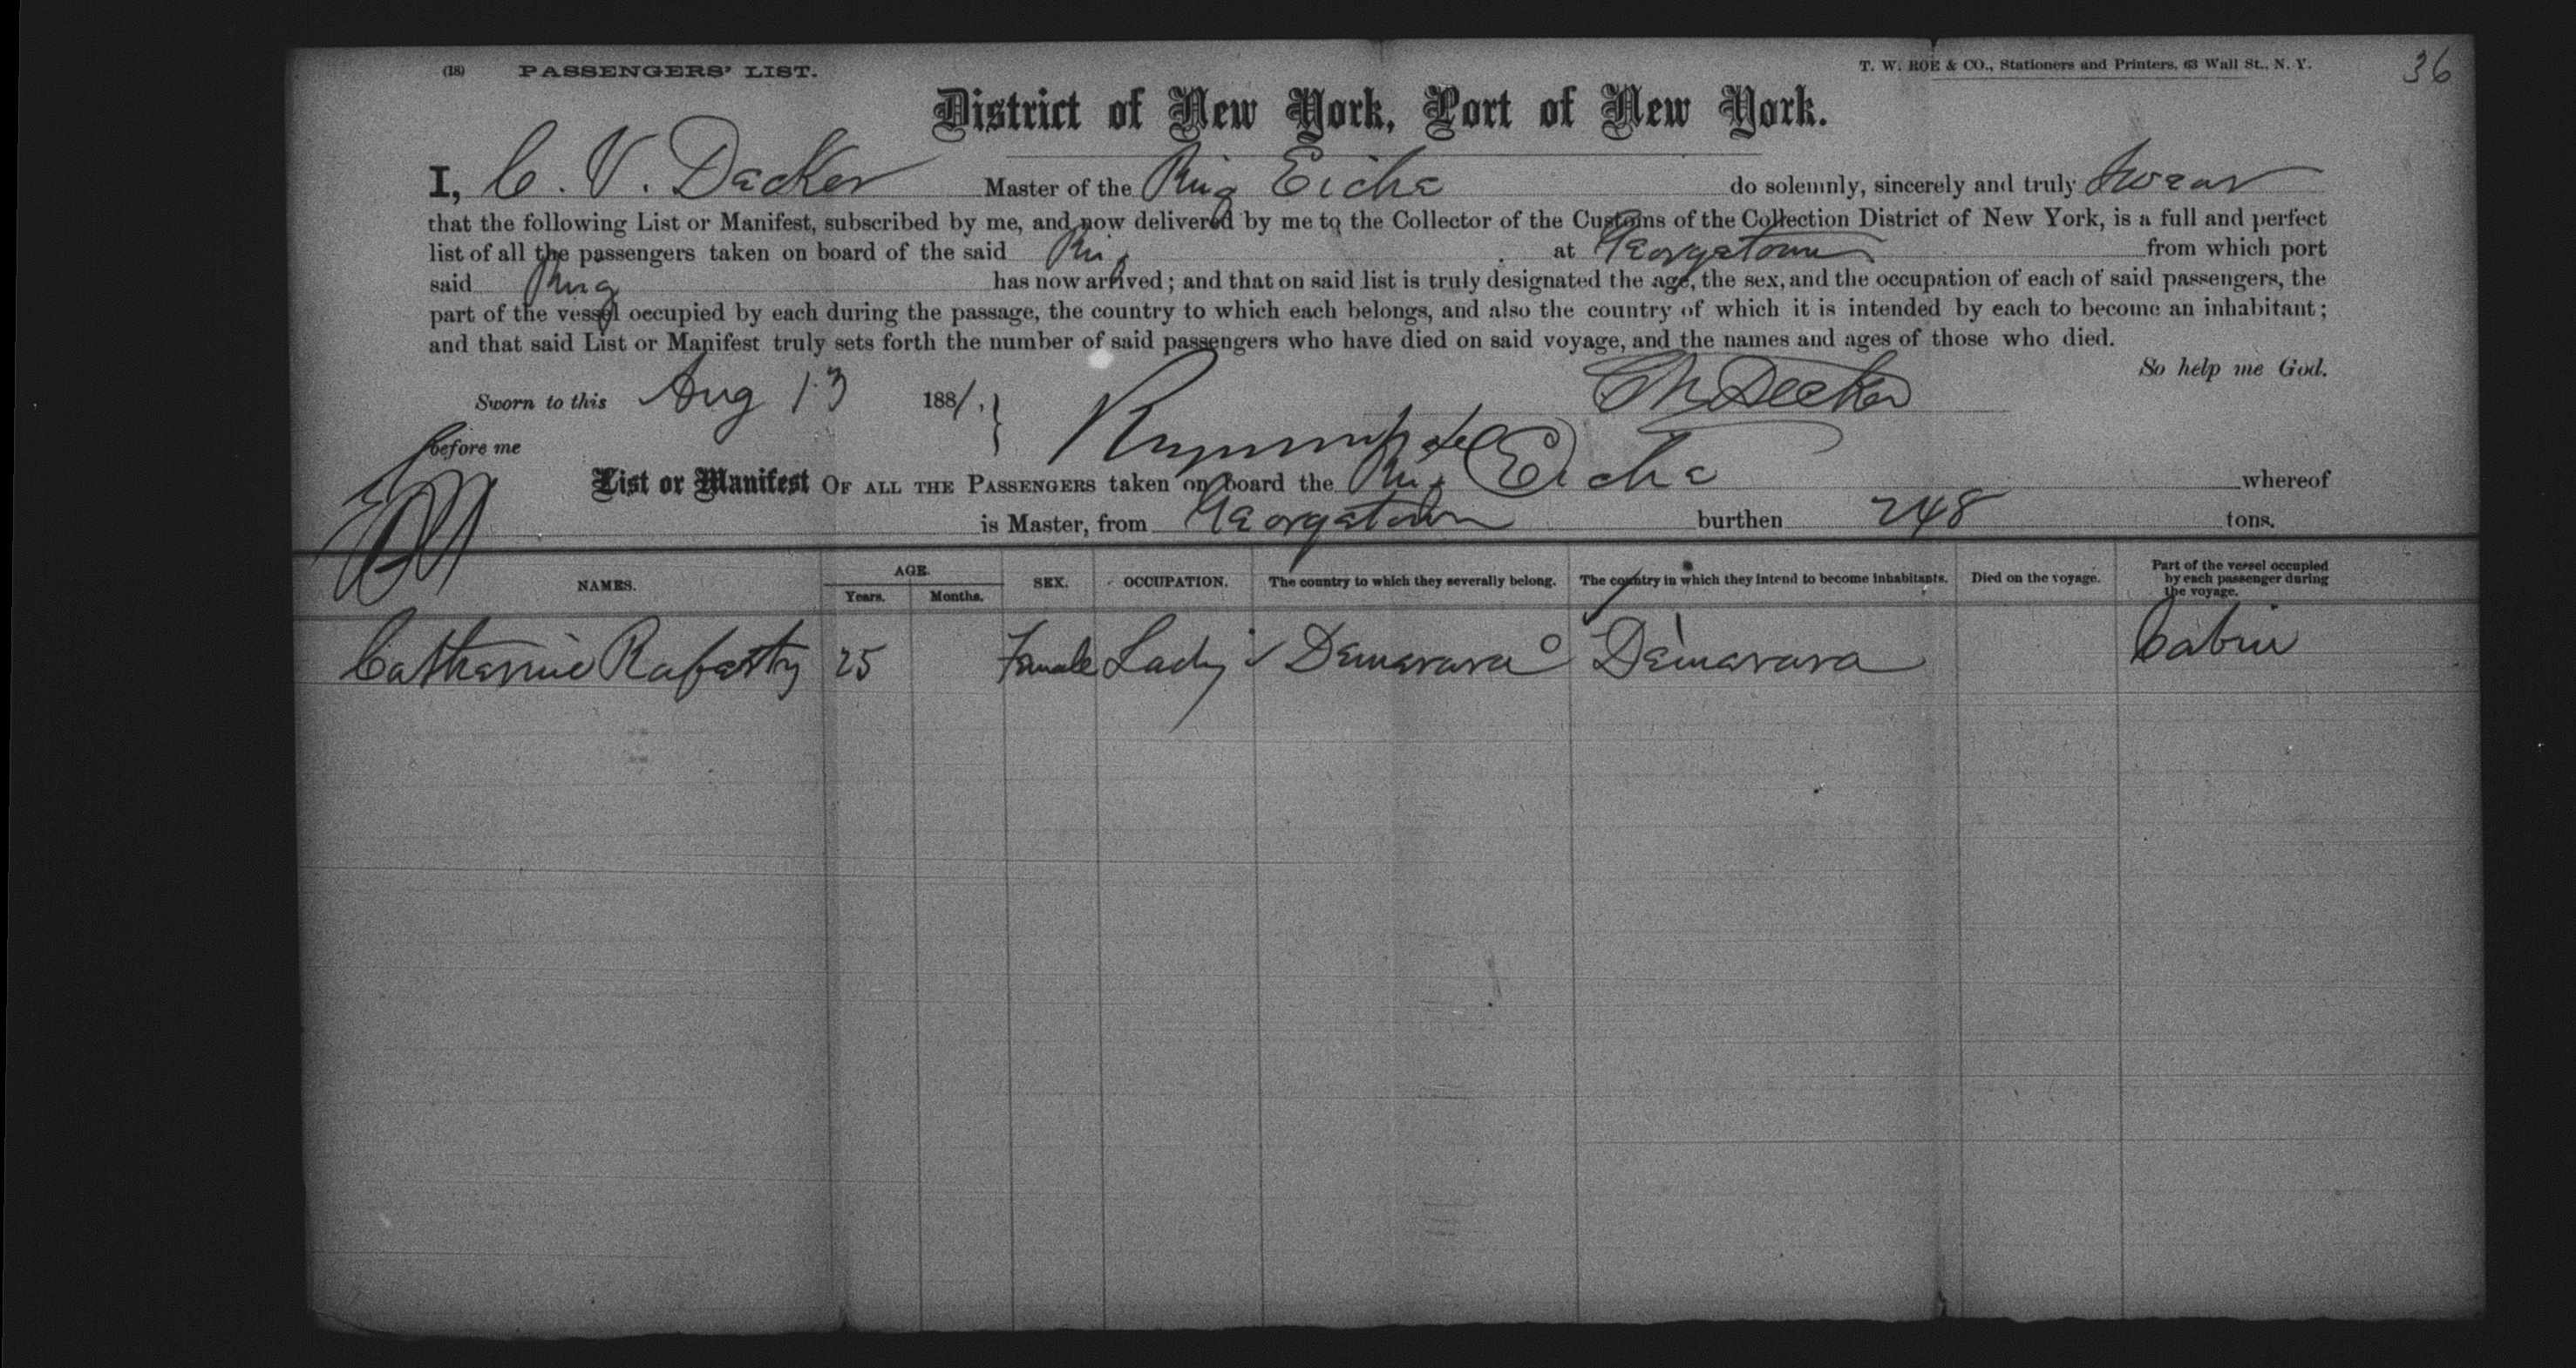 (18) PASSENGERS' LIST.
T. W. ROE & CO., Stationers and Printers, 63 Wall St., N. Y.
36
District of New York, Port of New York.
I, C. V. Decker Master of the Brig Eiche do solemnly, sincerely and truly swear
that the following List or Manifest, subscribed by me, and now delivered by me to the Collector of the Customs of the Collection District of New York, is a full and perfect
list of all the passengers taken on board of the said Brig at Georgetown from which port
said Brig has now arrived; and that on said list is truly designated the age, the sex, and the occupation of each of said passengers, the
part of the vessel occupied by each during the passage, the country to which each belongs, and also the country of which it is intended by each to become an inhabitant;
and that said List or Manifest truly sets forth the number of said passengers who have died on said voyage, and the names and ages of those who died.
So help me God.
Sworn to this Aug 13 1881, Decker
before me
List or Manifest OF ALL THE PASSENGERS taken on board the Brig Eiche whereof
is Master, from Georgetown burthen 248 tons.
NAMES. AGE. Years. Months. SEX. OCCUPATION. The country to which they severally belong. The country in which they intend to become inhabitants. Died on the voyage. Part of the vessel occupied by each passenger during the voyage.
Catherine Raferty 25 Female Lady Demerara Demerara Cabin